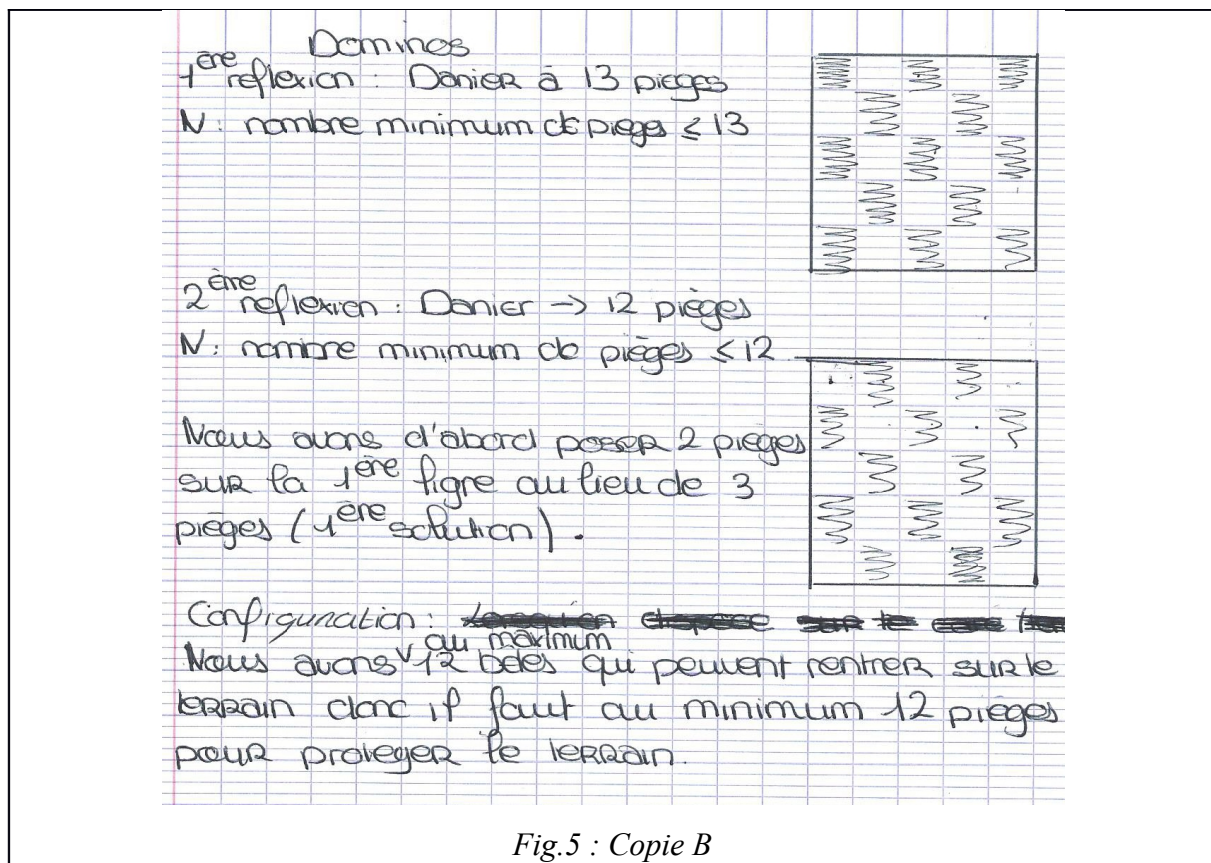 Dominos
1ère reflexion : Danier à 13 pieges
N : nombre minimum de pieges ≤ 13
2ème reflexien : Danier → 12 pièges
N : nombre minimum de pièges ≤ 12
Nous avons d'abord poser 2 pieges
sur la 1ère ligne au lieu de 3
pièges (1ère solution).
Configuration :
au maximum
Nous avons 12 betes qui peuvent rentrer sur le
terrain donc il faut au minimum 12 pieges
pour proteger le terrain.
Fig.5 : Copie B